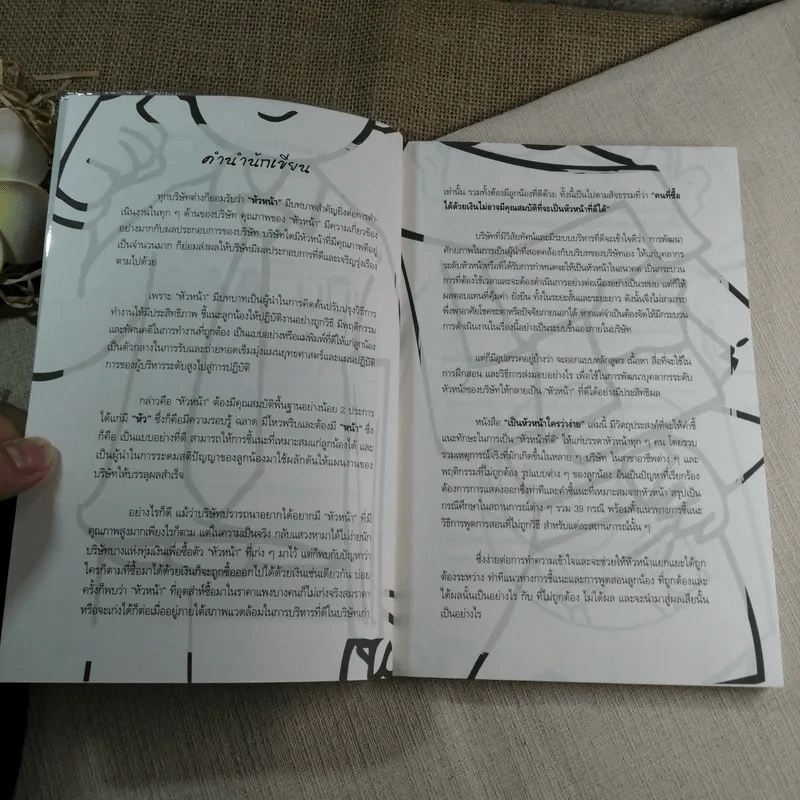 คำนำนักเขียน
ทุกบริษัทต่างก็ยอมรับว่า "หัวหน้า" มีบทบาทสำคัญยิ่งต่อการดำ
เนินงานในทุก ๆ ด้านของบริษัท คุณภาพของ "หัวหน้า" มีความเกี่ยวข้อง
อย่างมากกับผลประกอบการของบริษัท บริษัทใดมีหัวหน้าที่มีคุณภาพดีอยู่
เป็นจำนวนมาก ก็ย่อมส่งผลให้บริษัทมีผลประกอบการที่ดีและเจริญรุ่งเรือง
ตามไปด้วย
เพราะ "หัวหน้า" มีบทบาทเป็นผู้นำในการคิดค้นปรับปรุงวิธีการ
ทำงานให้มีประสิทธิภาพ ชี้แนะลูกน้องให้ปฏิบัติงานอย่างถูกวิธี มีพฤติกรรม
และทัศนคติในการทำงานที่ถูกต้อง เป็นแบบอย่างหรือแม่พิมพ์ที่ดีให้แก่ลูกน้อง
เป็นตัวกลางในการรับและถ่ายทอดเข็มมุ่งแผนยุทธศาสตร์และแผนปฏิบัติ
การของผู้บริหารระดับสูงไปสู่การปฏิบัติ
กล่าวคือ "หัวหน้า" ต้องมีคุณสมบัติพื้นฐานอย่างน้อย 2 ประการ
ได้แก่มี "หัว" ซึ่งก็คือมีความรอบรู้ ฉลาด มีไหวพริบและต้องมี "หน้า" ซึ่ง
ก็คือ เป็นแบบอย่างที่ดี สามารถให้การชี้แนะที่เหมาะสมแก่ลูกน้องได้ และ
เป็นผู้นำในการระดมสติปัญญาของลูกน้องมาใช้ผลักดันให้แผนงานของ
บริษัทให้บรรลุผลสำเร็จ
อย่างไรก็ดี แม้ว่าบริษัทปรารถนาอยากได้อยากมี "หัวหน้า" ที่มี
คุณภาพสูงมากเพียงไรก็ตาม แต่ในความเป็นจริง กลับแสวงหามาได้ไม่ง่ายนัก
บริษัทบางแห่งทุ่มเงินเพื่อซื้อตัว "หัวหน้า" ที่เก่ง ๆ มาไว้ แต่ก็พบกับปัญหาว่า
ใครก็ตามที่ซื้อมาได้ด้วยเงินก็จะถูกซื้อออกไปได้ด้วยเงินเช่นเดียวกัน บ่อย
ครั้งก็พบว่า "หัวหน้า" ที่อุตส่าห์ซื้อมาในราคาแพงบางคนก็ไม่เก่งจริงสมราคา
หรือจะเก่งได้ก็ต่อเมื่ออยู่ภายใต้สภาพแวดล้อมในการบริหารที่ดีในบริษัทเก่า
เท่านั้น รวมทั้งต้องมีลูกน้องที่ดีด้วย ทั้งนี้เป็นไปตามสัจธรรมที่ว่า "คนที่ซื้อ
ได้ด้วยเงินไม่อาจมีคุณสมบัติที่จะเป็นหัวหน้าที่ดีได้"
บริษัทที่มีวิสัยทัศน์และมีระบบบริหารที่ดีจะเข้าใจดีว่า การพัฒนา
ศักยภาพในการเป็นผู้นำที่สอดคล้องกับบริบทของบริษัทเอง ให้แก่บุคลากร
ระดับหัวหน้าหรือที่ได้รับการกำหนดจะให้เป็นหัวหน้าในอนาคต เป็นกระบวน
การที่ต้องใช้เวลาและจะต้องดำเนินการอย่างต่อเนื่องอย่างเป็นระบบ แต่ก็ให้
ผลตอบแทนที่คุ้มค่า ยั่งยืน ทั้งในระยะสั้นและระยะยาว ดังนั้นจึงไม่สามารถ
พึ่งพาอาศัยโชคชะตาหรือปัจจัยภายนอกได้ หากแต่จำเป็นต้องจัดให้มีกระบวน
การดำเนินงานในเรื่องนี้อย่างเป็นระบบขึ้นเองภายในบริษัท
แต่ก็มีอุปสรรคอยู่บ้างว่า จะออกแบบหลักสูตร เนื้อหา สื่อที่จะใช้ใน
การฝึกสอน และวิธีการส่งมอบอย่างไร เพื่อใช้ในการพัฒนาบุคลากรระดับ
หัวหน้าของบริษัทให้กลายเป็น "หัวหน้า" ที่ดีได้อย่างมีประสิทธิผล
หนังสือ "เป็นหัวหน้าใครว่าง่าย" เล่มนี้ มีวัตถุประสงค์ที่จะให้คำชี้
แนะทักษะในการเป็น "หัวหน้าที่ดี" ให้แก่บรรดาหัวหน้าทุก ๆ คน โดยรวบ
รวมเหตุการณ์จริงที่มักเกิดขึ้นในหลาย ๆ บริษัท ในสาขาอาชีพต่าง ๆ และ
พฤติกรรมที่ไม่ถูกต้อง รูปแบบต่าง ๆ ของลูกน้อง อันเป็นปัญหาที่เรียกร้อง
ต้องการการแสดงออกซึ่งท่าทีและคำชี้แนะที่เหมาะสมจากหัวหน้า สรุปเป็น
กรณีศึกษาในสถานการณ์ต่าง ๆ รวม 39 กรณี พร้อมทั้งแนวทางการชี้แนะ
วิธีการพูดการสอนที่ไม่ถูกวิธี สำหรับแต่ละสถานการณ์นั้น ๆ
ซึ่งง่ายต่อการทำความเข้าใจและจะช่วยให้หัวหน้าแยกแยะได้ถูก
ต้องระหว่าง ท่าทีแนวทางการชี้แนะและการพูดสอนลูกน้อง ที่ถูกต้องและ
ได้ผลนั้นเป็นอย่างไร กับ ที่ไม่ถูกต้อง ไม่ได้ผล และจะนำมาสู่ผลเสียนั้น
เป็นอย่างไร